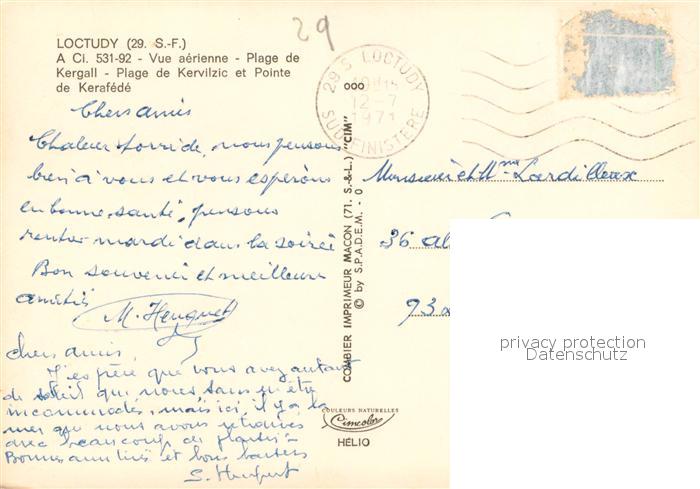 29
LOCTUDY (29. S.-F.)
A Ci. 531-92 - Vue aérienne - Plage de
Kergall - Plage de Kervilzic et Pointe
de Kerafédé
29 S LOCTUDY
12-7
1971
SUD-FINISTERE
Chers amis
Chaleur torride, nous pensons
bien à vous et vous espérons
en bonne santé, pensons
rentrer mardi dans la soirée
Bon souvenir et meilleures
amitiés
M. Heuquet
Chers amis,
J'espère que vous avez autant
de soleil qui nous sans en être
incommodés, mais ici, il y a la
mer que nous avons retrouvée
avec beaucoup de plaisir
Bonnes amitiés et bons baisers
COMBIER IMPRIMEUR MACON (71. S.-&L.) "CIM"
© by S.P.A.D.E.M. - 0
000
Monsieur et Mme Lardilleux
36
93
COULEURS NATURELLES
Cimcolor
HÉLIO
privacy protection
Datenschutz